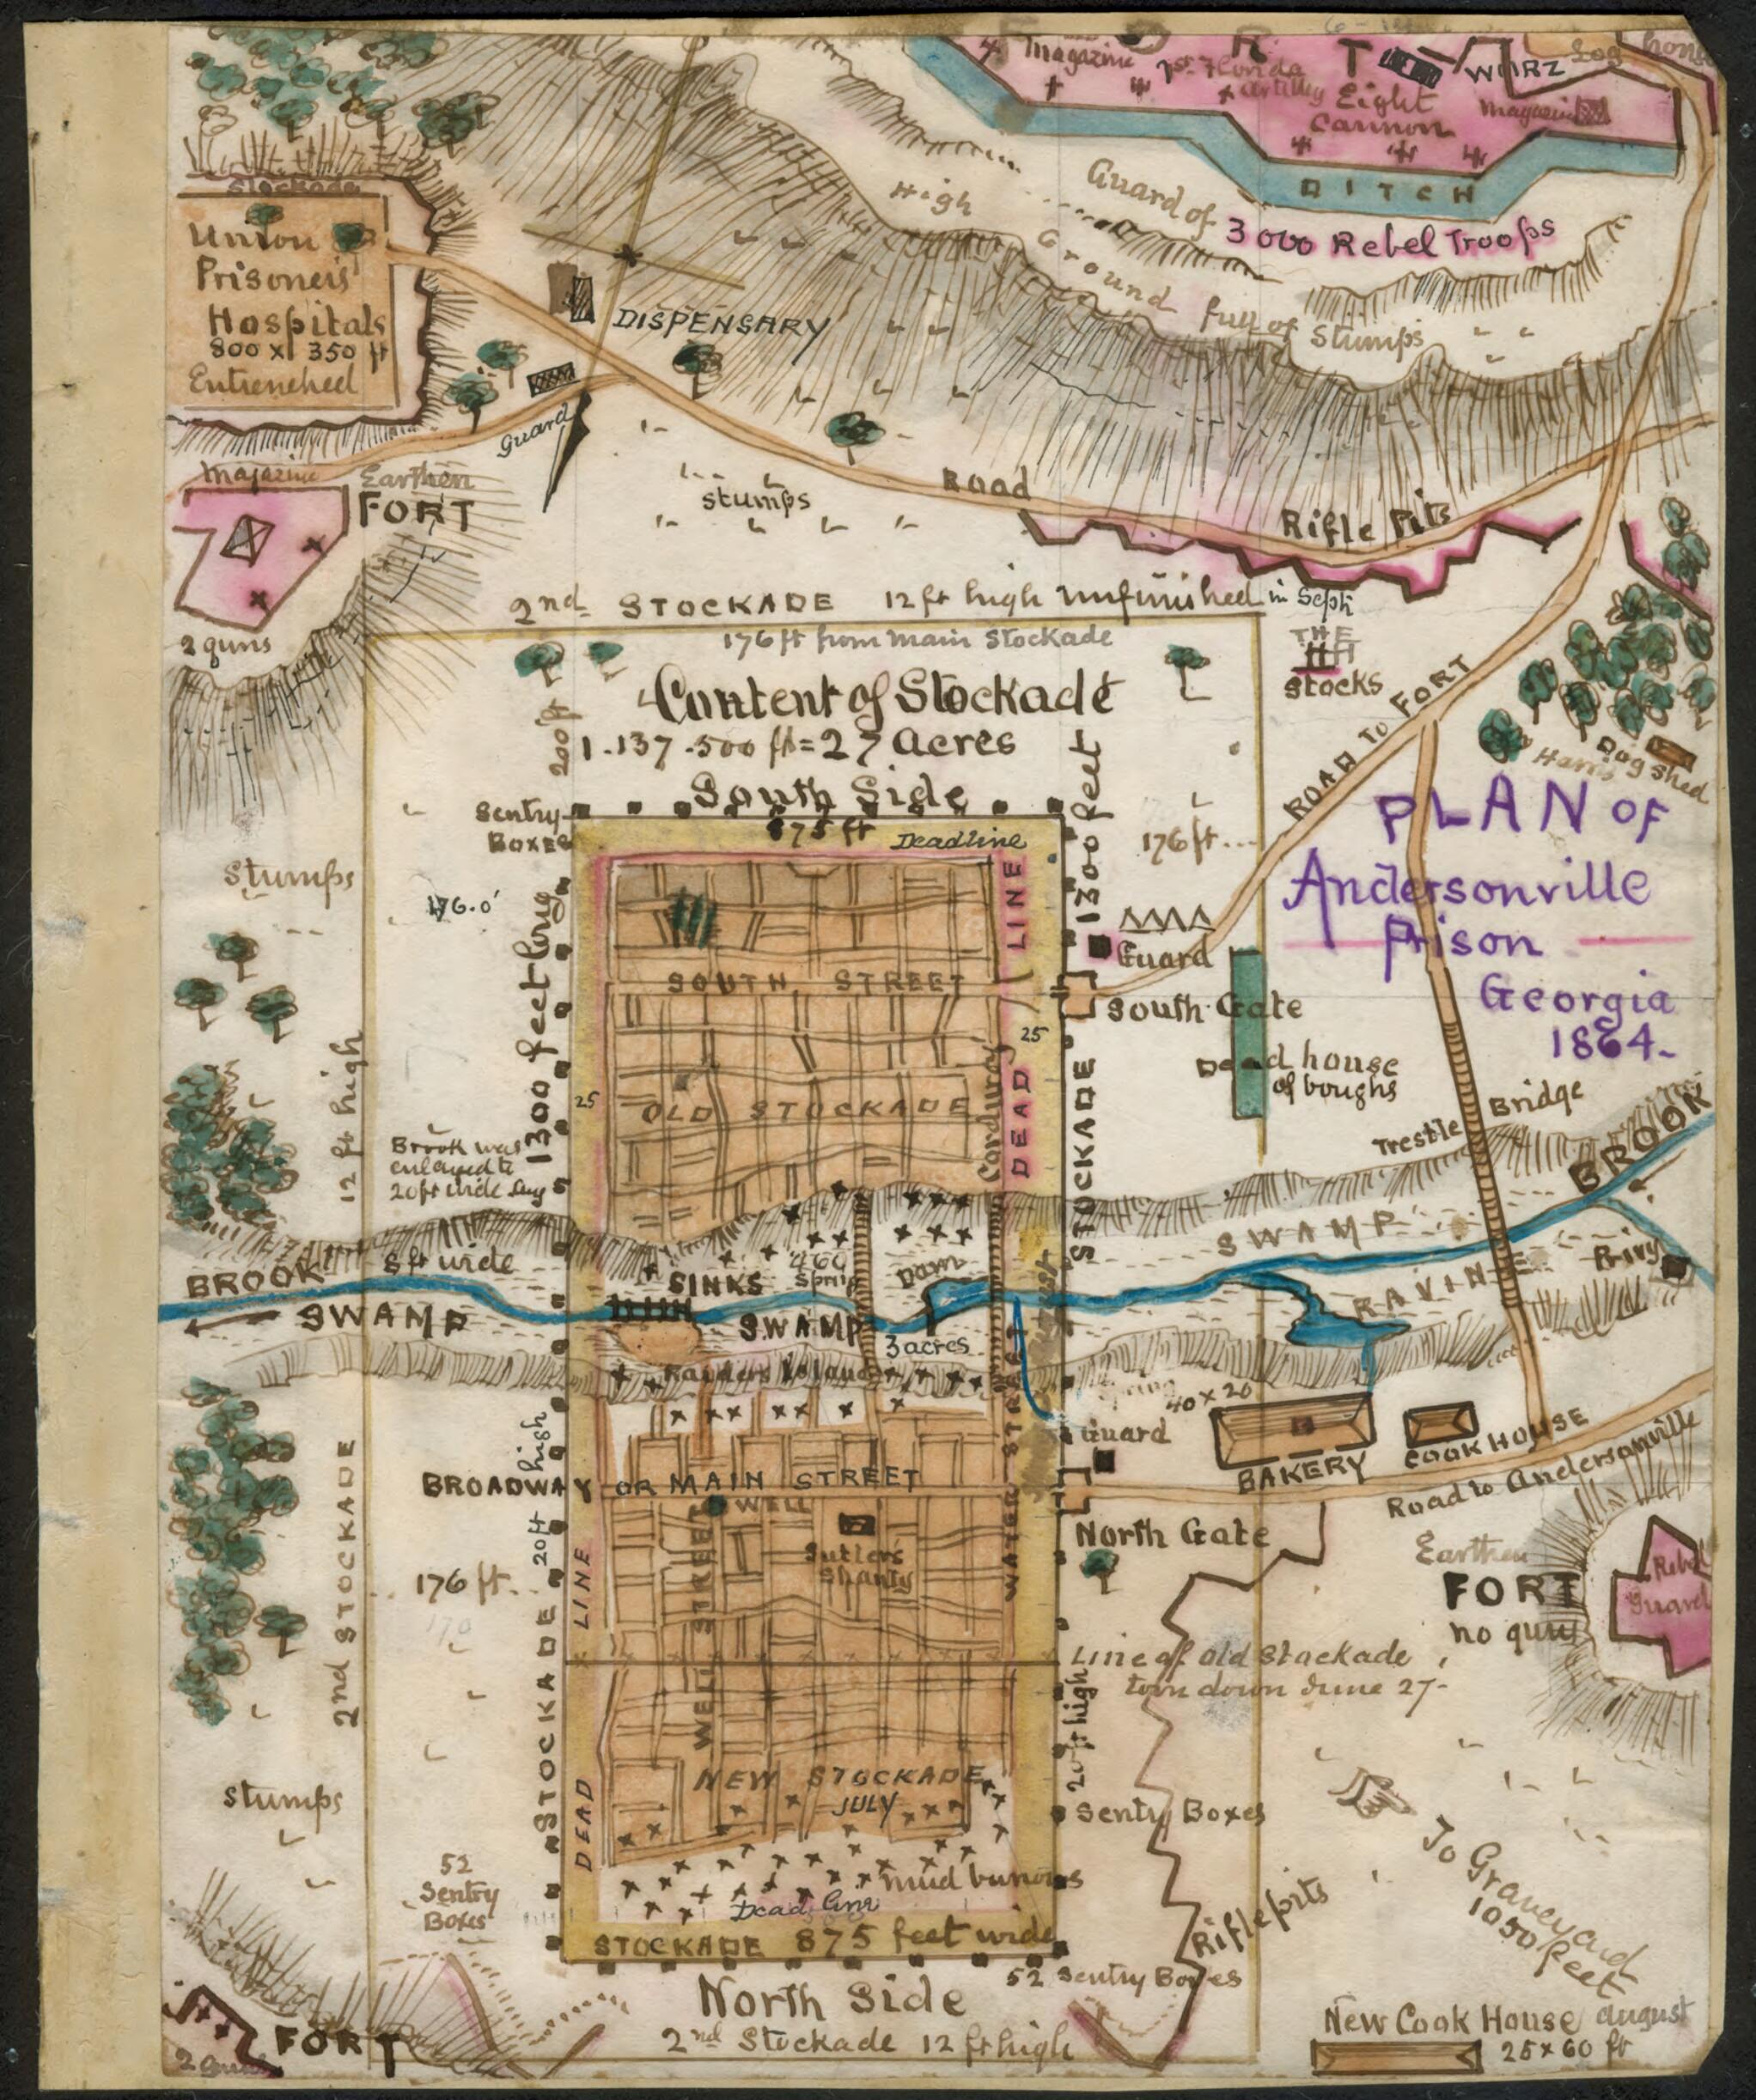 FORT
Magazine
1st Florida
Artillery
Eight
Cannon
WIRZ
Log house
Magazine
DITCH
High
Ground full of Stumps
Guard of
3000 Rebel Troops
Stockade
Union
Prisoners'
Hospitals
800 x 350 ft
Entrenched
DISPENSARY
Guard
Magazine
Earthen
FORT
2 guns
stumps
Road
Rifle Pits
2nd STOCKADE 12 ft high unfinished in Sept
176 ft from Main Stockade
THE
Stocks
ROAD TO FORT
Harris
Dog shed
200 ft
Content of Stockade
1.137.500 ft = 27 Acres
South Side
875 ft
Sentry
Boxes
Deadline
PLAN OF
Andersonville
Prison
Georgia
1864.
Stumps
176.0'
1300 feet long
1300 feet
176 ft
Guard
South Gate
Dead house
of boughs
SOUTH STREET
DEAD LINE
25
25
OLD STOCKADE
Corduroy
STOCKADE
12 ft high
Brook was
enlarged to
20 ft wide Aug
Trestle Bridge
BROOK
SWAMP
RAVINE
Privy
BROOK
8 ft wide
SWAMP
SINKS
Spring
Dam
SWAMP
3 acres
Raiders Island
Spring
40 x 20
Guard
BAKERY
COOK HOUSE
Road to Andersonville
high
20 ft
BROADWAY OR MAIN STREET
WELL
Sutlers
Shanty
WATER STREET
WELL STREET
North Gate
Earthen
FORT
no guns
Rebel
Guard
2nd STOCKADE
176 ft
170
DEAD LINE
STOCKADE
Line of Old Stockade
torn down June 27-
20 ft high
NEW STOCKADE
JULY
Sentry Boxes
Stumps
52
Sentry
Boxes
mud burrows
Dead line
STOCKADE 875 feet wide
52 Sentry Boxes
Rifle pits
To Graveyard
1050 feet
North Side
2nd Stockade 12 ft high
FORT
2 Guns
New Cook House August
25 x 60 ft